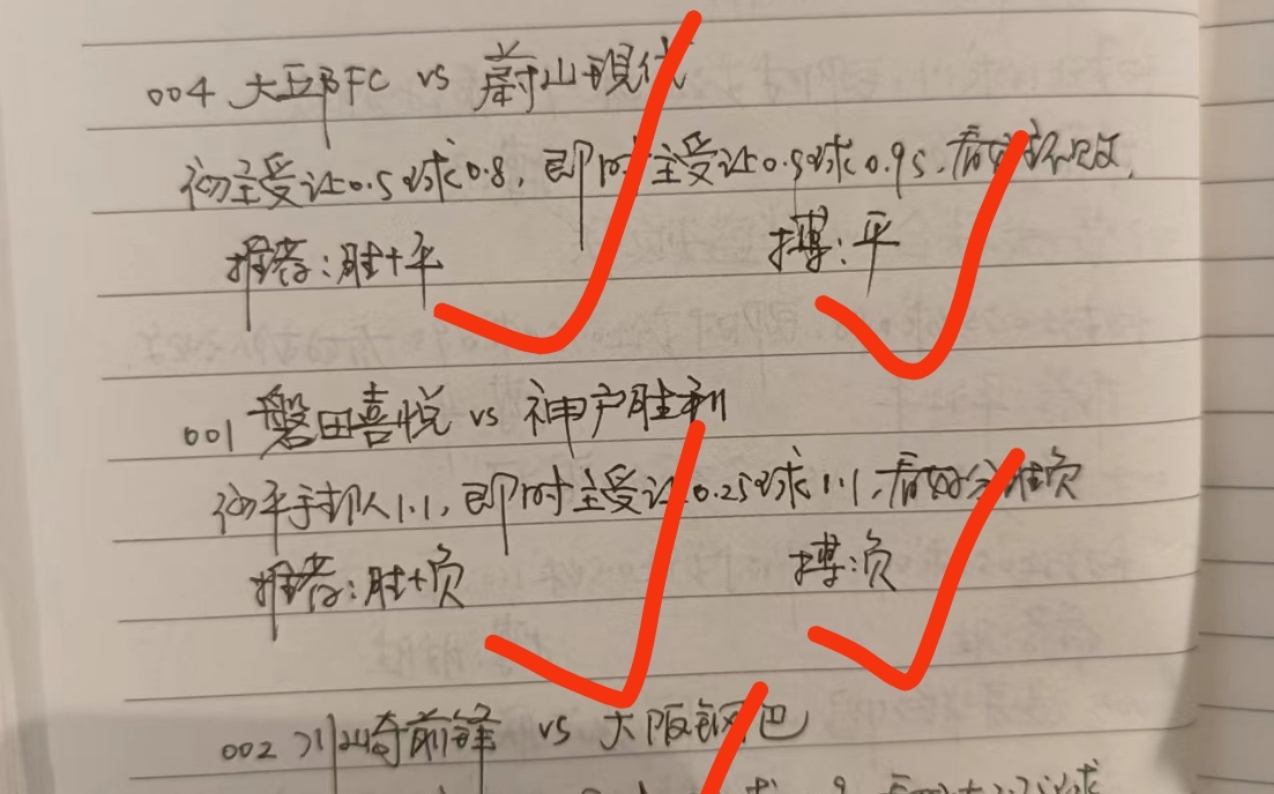 004 大邱FC vs 蔚山现代
初主受让0.5球0.8,即时主受让0.5球0.95,看好主队不败,
推荐:胜+平 搏:平
001 磐田喜悦 vs 神户胜利
初平手主队1.1,即时主受让0.25球1.1,看好分胜负
推荐:胜+负 搏:负
002 川崎前锋 vs 大阪钢巴